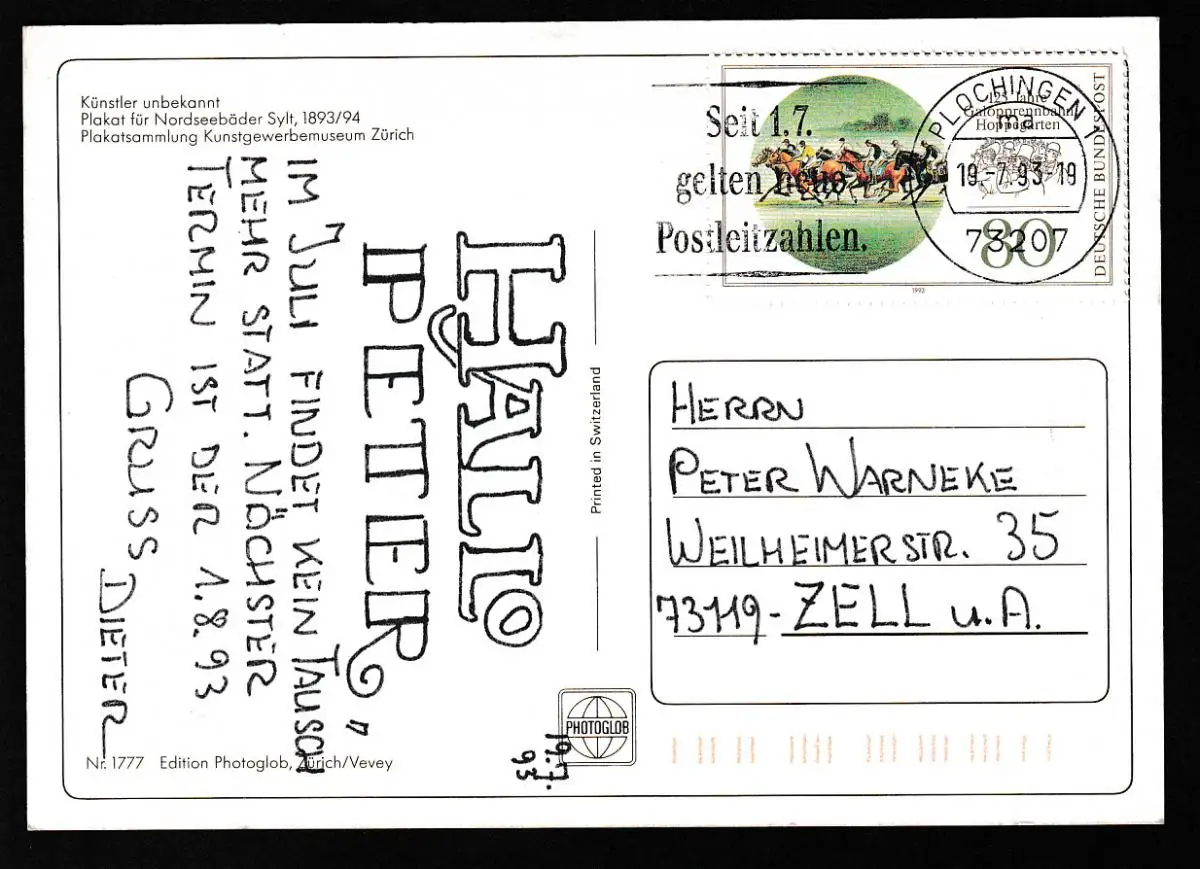 Künstler unbekannt
Plakat für Nordseebäder Sylt, 1893/94
Plakatsammlung Kunstgewerbemuseum Zürich
HALLO
PETER,
IM JULI FINDET KEIN TAUSCH
MEHR STATT. NÄCHSTER
TERMIN IST DER 1.8.93
GRUSS
DIETER
19.7.
93
Nr. 1777 Edition Photoglob, Zürich/Vevey
Printed in Switzerland
PHOTOGLOB
Seit 1.7.
gelten neue
Postleitzahlen.
PLOCHINGEN 1
ma
19.-7.93.-19
73207
125 Jahre
Galopprennbahn
Hoppegarten
80
DEUTSCHE BUNDESPOST
1993
HERRN
PETER WARNEKE
WEILHEIMERSTR. 35
73119-ZELL u. A.